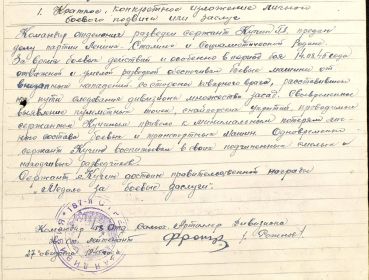 1. Краткое, конкретное изложение личного
боевого подвига или заслуг
Командир отделения разведки сержант Кучин предан
делу партии Ленина-Сталина и Социалистической Родине.
За время боевых действий и особенно в период боя 14.8.45 года
отважной и смелой разведкой обеспечивал боевые машины от
внезапного нападения со стороны коварного врага, расставившего
на пути следования дивизиона множество засад. Своевременное
выявление пулеметных точек, снайперских укрытий проводимое
сержантом Кучиным привело к минимальным потерям личного
состава боевых и транспортных машин. Одновременно
сержант Кучин воспитывал в своих подчиненных смелых и
находчивых разведчиков.
Сержант Кучин достоин правительственной награды
"Медаль за боевые заслуги".
Командир Отд. Самох. Артиллер. Дивизиона
лейтенант
27 августа 1945 года